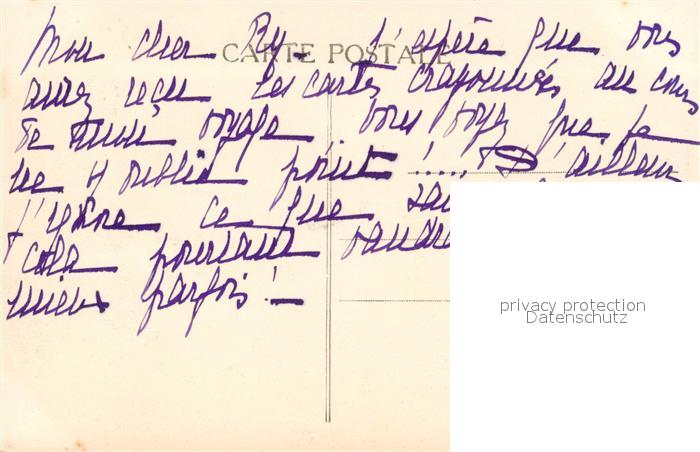 Mon cher By — J'espère que vous
CARTE POSTALE
aurez reçu les cartes crayonnées au cours
de mon voyage. Vous voyez que je
ne oublie point !.... D'ailleurs
j'ignore ce que
cela pourtant vaudra
mieux parfois ! —
privacy protection
Datenschutz